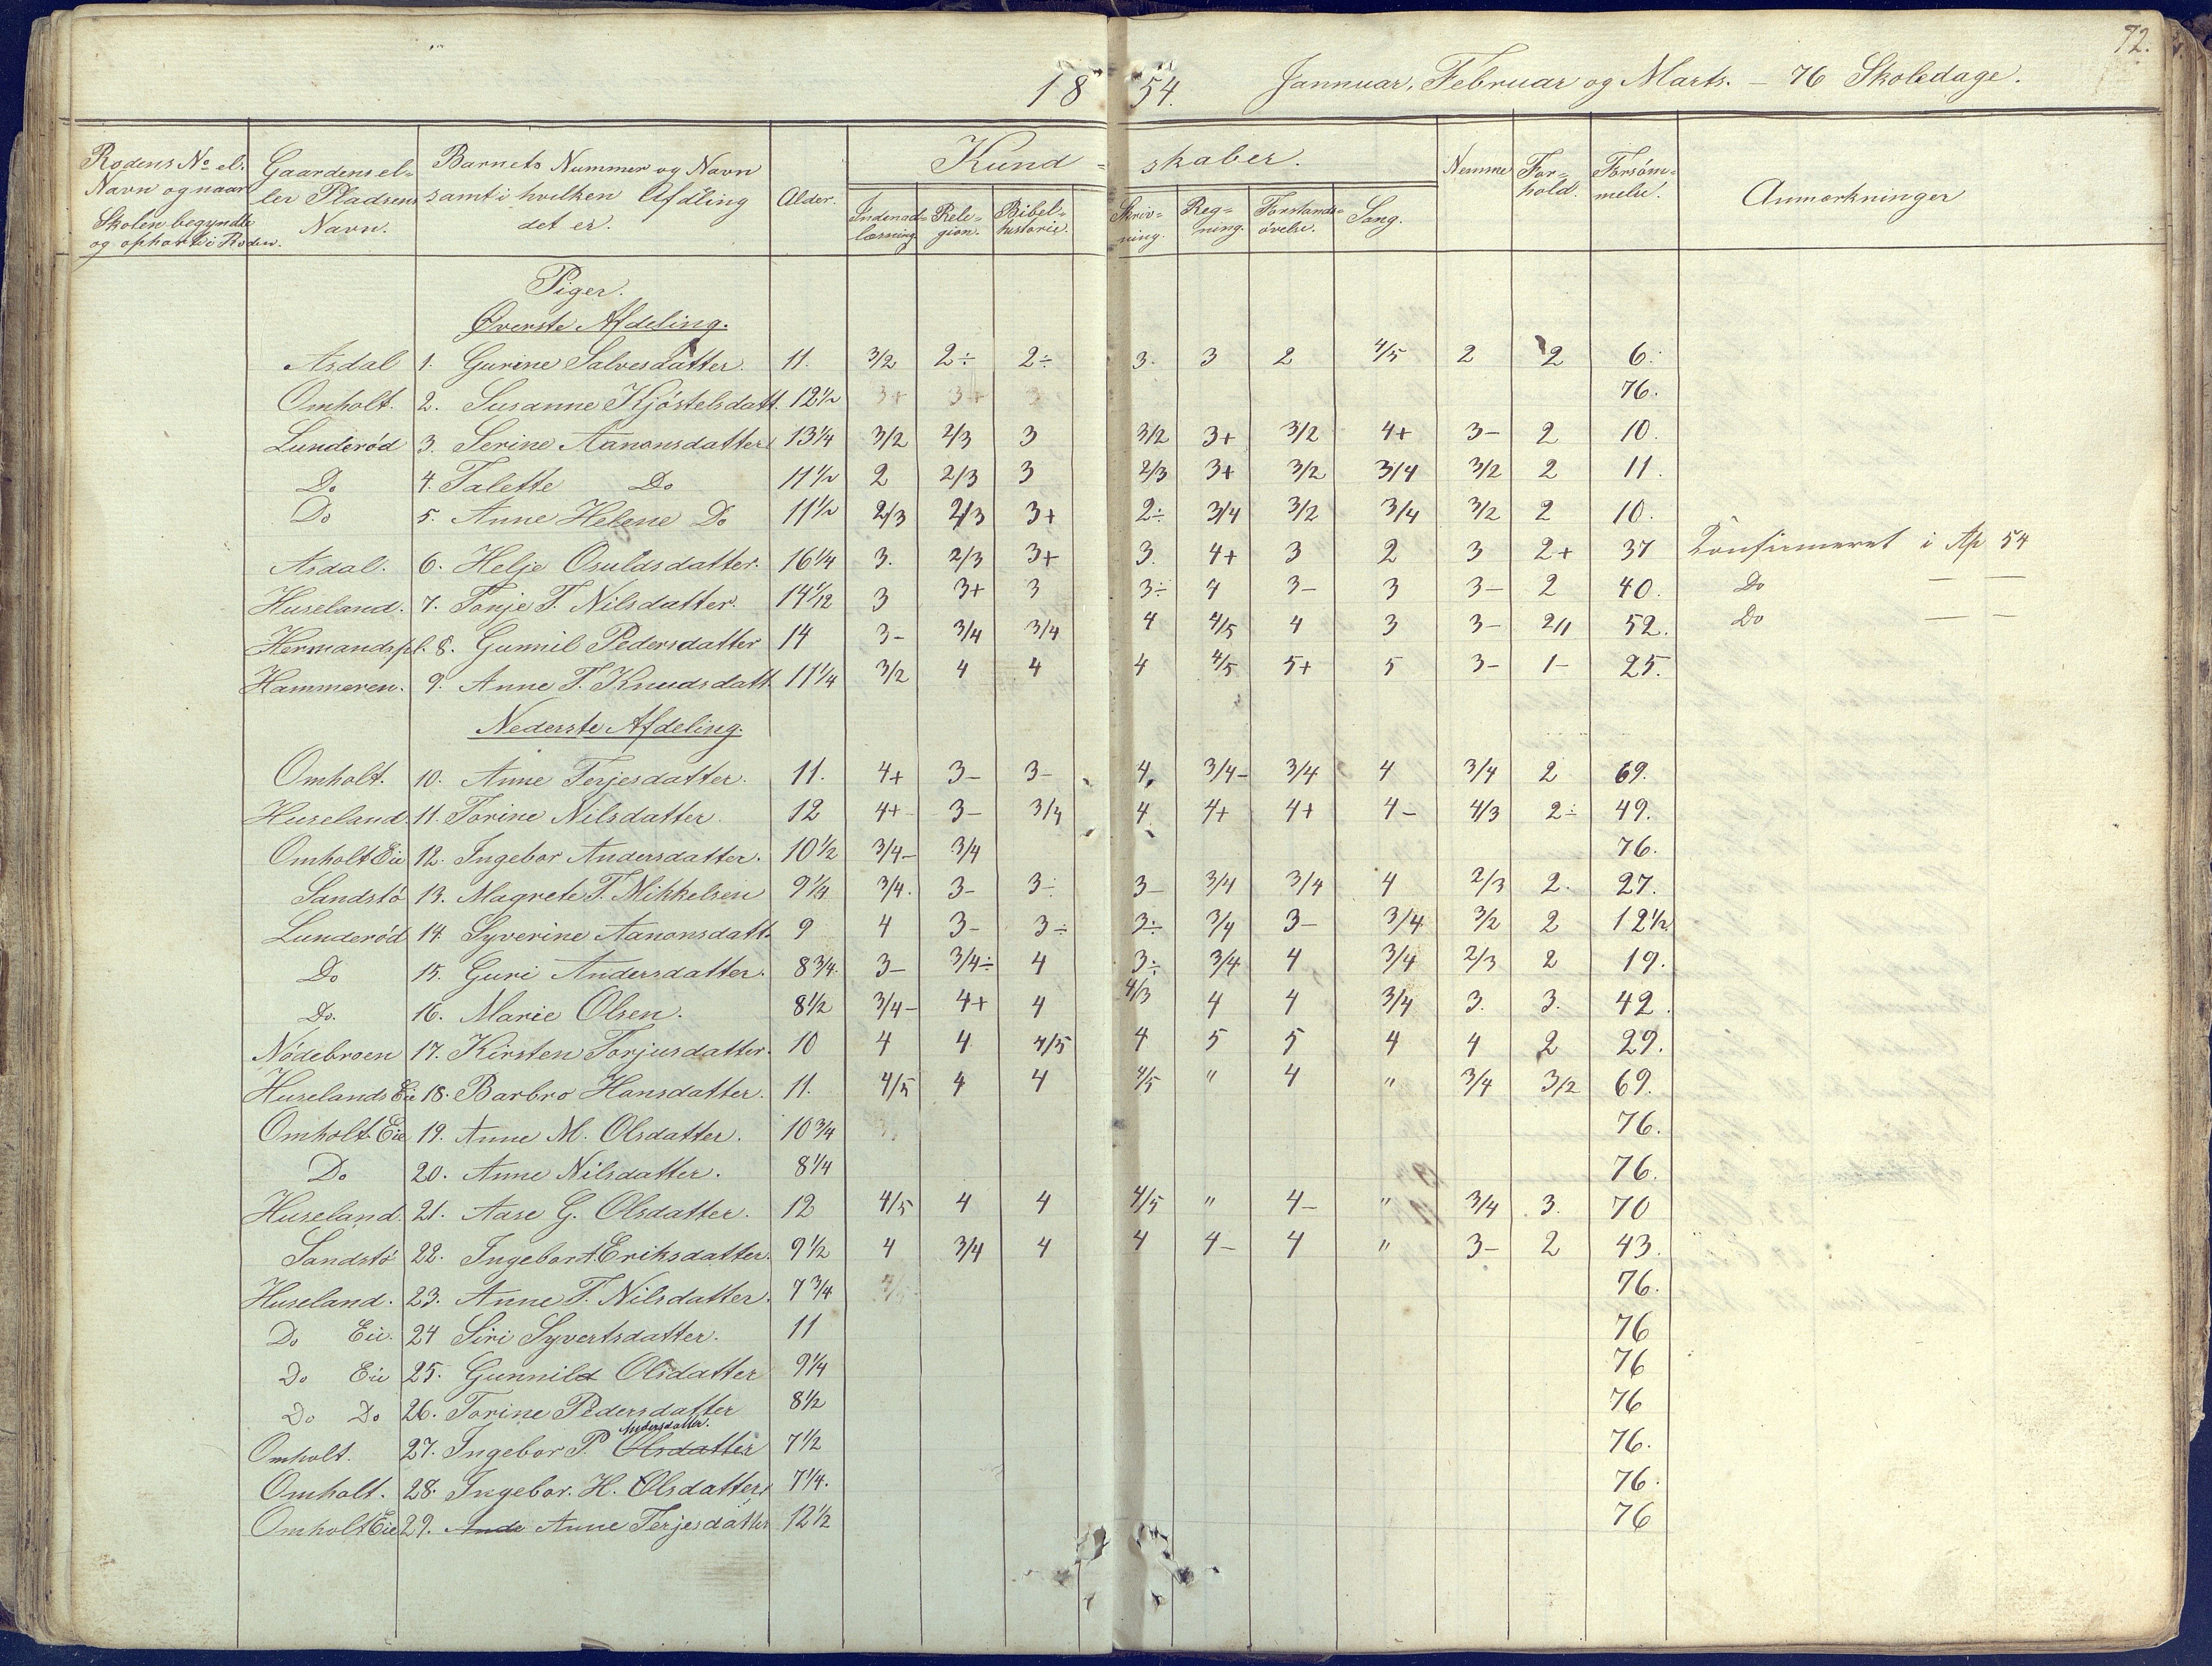 72.
18 54. Jannuar, Februar og Marts. – 76 Skoledage.
Rodens No el. Navn og naar Skolen begyndte og ophørte i Roden.
Gaardens eller Pladsens Navn.
Barnets Nummer og Navn samt i hvilken Afdling det er.
Alder.
Kund= skaber.
Indenadlæsning.
Religion.
Bibelhistorie.
Skrivning.
Regning.
Forstandsøvelse.
Sang.
Nemme
Forhold.
Forsømmelse.
Anmærkninger
Piger.
Øverste Afdeling.
Asdal 1. Gurine Salvesdatter. 11. 3/2 2÷ 2÷ 3. 3 2 4/5 2 2 6.
Omholt. 2. Susanne Kjöstelsdatt. 12 1/2 3+ 3+ 3 76.
Lunderød 3. Serine Aanonsdatter 13 1/4 3/2 2/3 3 3/2 3+ 3/2 4+ 3– 2 10.
Do 4. Talette Do 11 1/2 2 2/3 3 2/3 3+ 3/2 3/4 3/2 2 11.
Do 5. Anne Helene Do 11 1/2 2/3 2/3 3+ 2÷ 3/4 3/2 3/4 3/2 2 10.
Asdal. 6. Helje Osuldsdatter. 16 1/4 3. 2/3 3+ 3. 4+ 3 2 3 2+ 37 Konfirmeret i Ap 54
Huseland. 7. Tonje T. Nilsdatter. 14 1/12 3 3+ 3 3÷ 4 3– 3 3– 2 40. Do — —
Hermandspl. 8. Gunnil Pedersdatter 14 3– 3/4 3/4 4 4/5 4 3 3– 2/1 52. Do — —
Hammeren. 9. Anne T. Knudsdatt 11 1/4 3/2 4 4 4 4/5 5+ 5 3– 1– 25.
Nederste Afdeling.
Omholt. 10. Anne Terjesdatter. 11. 4+ 3– 3– 4. 3/4– 3/4 4 3/4 2 69.
Huseland. 11. Torine Nilsdatter. 12 4+ 3– 3/4 4 4+ 4+ 4– 4/3 2÷ 49.
Omholt Eie 12. Ingebor Andersdatter. 10 1/2 3/4– 3/4 76.
Sandstø 13. Magrete T. Mikkelsen 9 1/4 3/4. 3– 3÷ 3– 3/4 3/4 4 2/3 2. 27.
Lunderød 14. Syverine Aanonsdatt. 9 4 3– 3÷ 3÷ 3/4 3– 3/4 3/2 2 12 1/2
Do 15. Guri Andersdatter. 8 3/4. 3– 3/4÷ 4 3÷ 3/4 4 3/4 2/3 2 19.
Do. 16. Marie Olsen. 8 1/2 3/4– 4+ 4 4/3 4 4 3/4 3. 3. 42.
Nødebroen 17. Kirsten Torjusdatter. 10 4 4 4/5 4 5 5 4 4 2 29.
Huselands Eie 18. Barbro Hansdatter. 11. 4/5 4 4 4/5 " 4 " 3/4 3/2 69.
Omholt Eie 19. Anne M. Olsdatter. 10 3/4 76.
Do 20. Anne Nilsdatter. 8 1/4 76.
Huseland. 21. Aase G. Olsdatter. 12 4/5 4 4 4/5 " 4– " 3/4 3. 70
Sandstø 22. Ingebor A Eriksdatter. 9 1/2 4 3/4 4 4 4– 4 " 3– 2 43.
Huseland. 23. Anne T. Nilsdatter. 7 3/4 76.
Do Eie. 24 Siri Syvertsdatter. 11 76
Do Eie 25. Gunnild Olsdatter 9 1/4 76
Do Do 26. Torine Pedersdatter 8 1/2 76
Andersdatter.
Omholt. 27. Ingebor P. Olsdatter 7 1/2 76.
Omholt. 28. Ingebor. H. Olsdatter 7 1/4. 76.
Omholt Eie 29. Ande Anne Terjesdatter 12 1/2 76